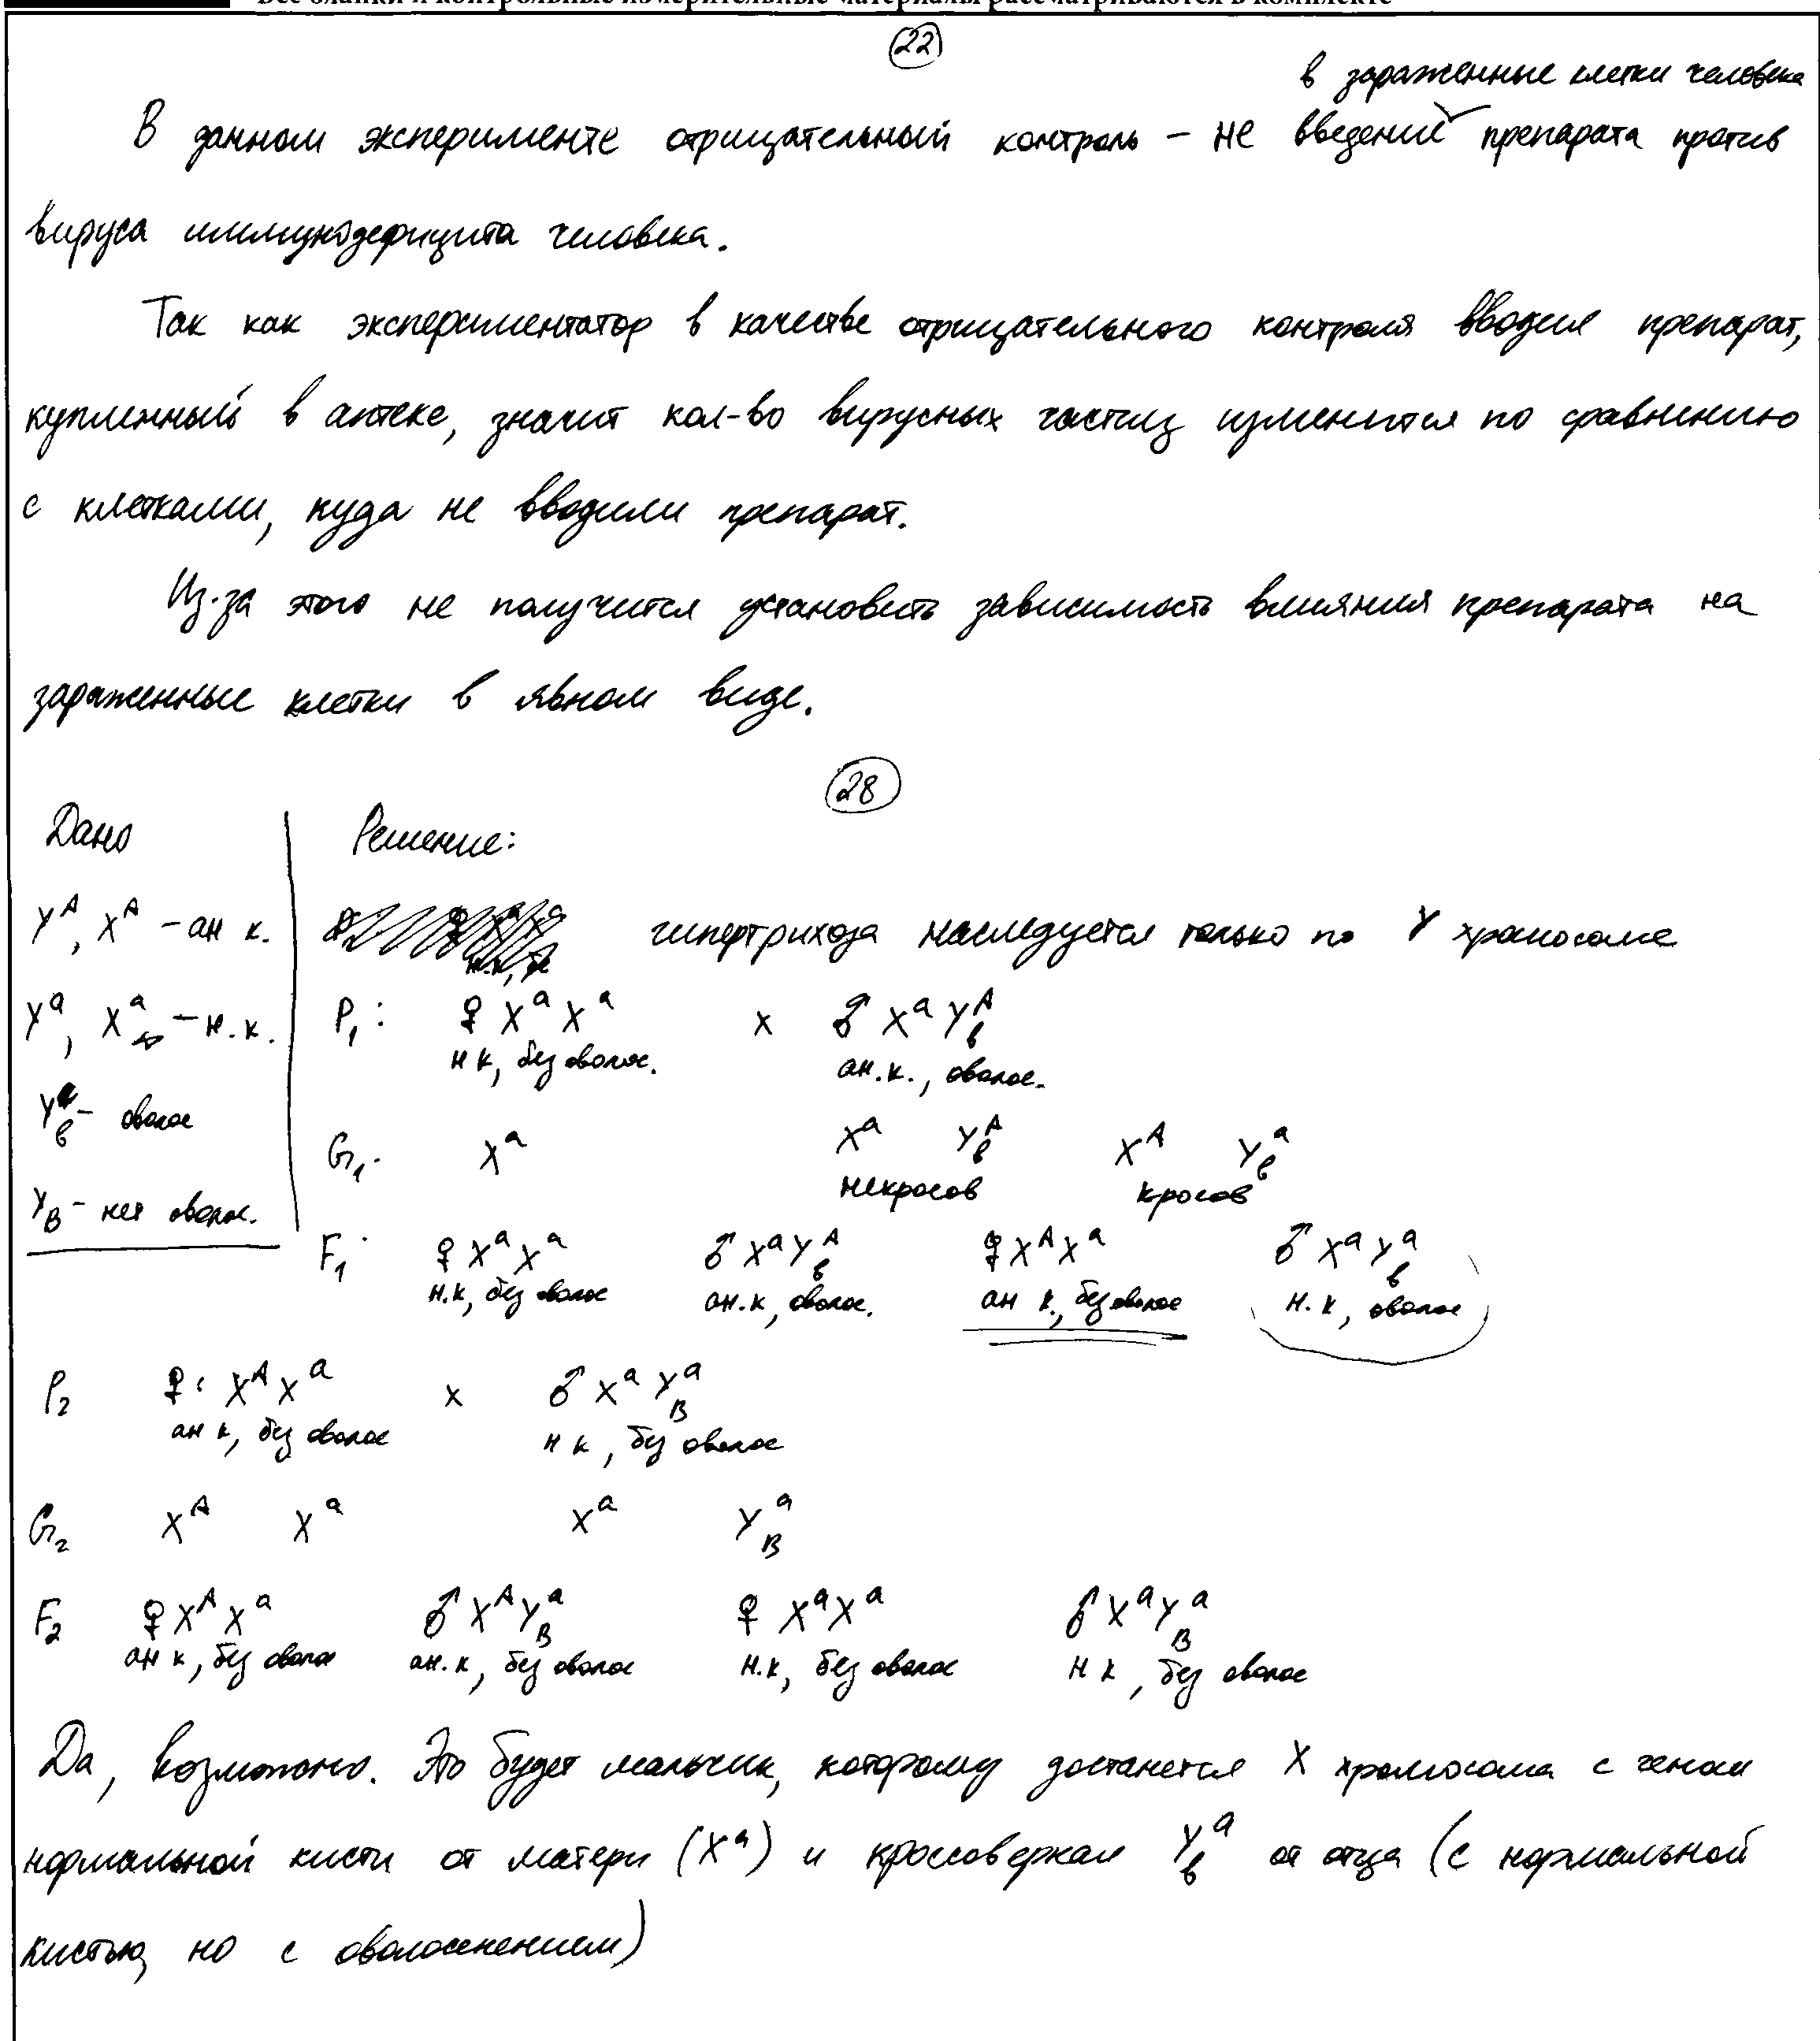 Все бланки и контрольные измерительные материалы рассматриваются в комплекте
22
в зараженные клетки человека
В данном эксперименте отрицательный контроль – не введений препарата против
вируса иммунодефицита человека.
Так как экспериментатор в качестве отрицательного контроля вводил препарат,
купленный в аптеке, значит кол-во вирусных частиц изменится по сравнению
с клетками, куда не вводили препарат.
Из-за этого не получится установить зависимость влияния препарата на
зараженные клетки в явном виде.
28
Дано Решение:
Y^A, X^A – ан к. гипертрихоза наследуется только по Y хромосоме
Y^a, X^a – н.к. P₁: ♀ X^a X^a x ♂ X^a Y_в^A
н к, без оволос. ан.к., оволос.
Y_в – оволос
G₁. X^a X^a Y_в^A X^A Y_в^a
некросов кросов
Y_B – нет оволос.
F₁: ♀ X^a X^a ♂ X^a Y_в^A ♀ X^A X^a ♂ X^a Y_в^a
н.к, без оволос ан.к, оволос. ан к., без оволос н.к, оволос
P₂ ♀: X^A X^a x ♂ X^a Y_B^a
ан к, без оволос н к, без оволос
G₂ X^A X^a X^a Y_B^a
F₂ ♀ X^A X^a ♂ X^A Y_B^a ♀ X^a X^a ♂ X^a Y_B^a
ан к, без оволос ан.к, без оволос н.к, без оволос н к, без оволос
Да, возможно. Это будет мальчик, которому достанется X хромосома с геном
нормальной кисти от матери (X^a) и кроссоверная Y_в^a от отца (с нормальной
кистью, но с оволосенением)